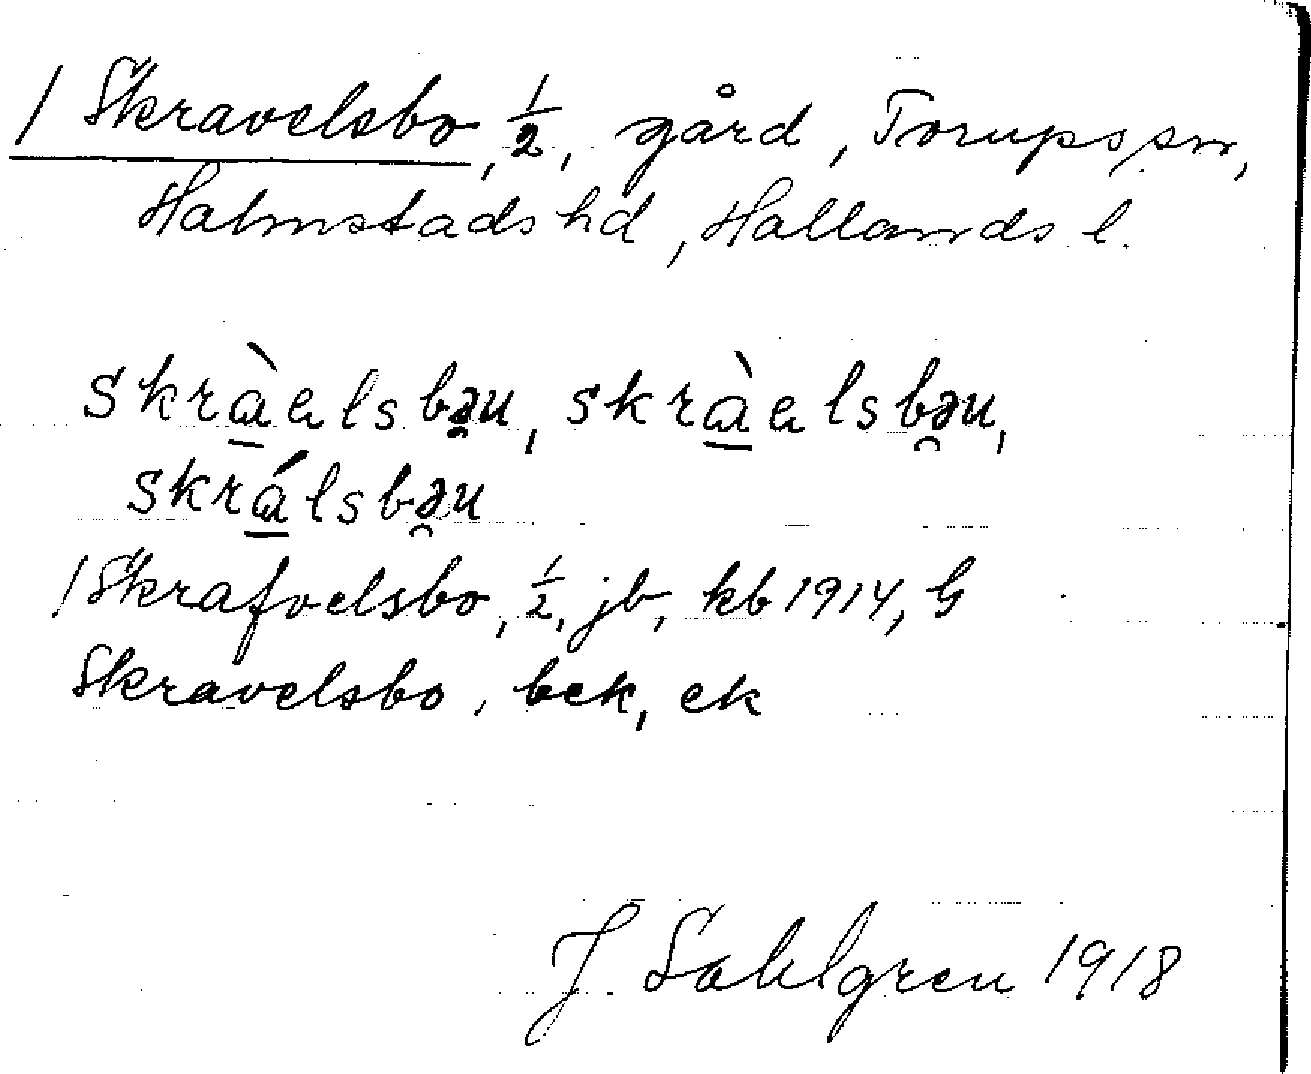 / Skravelsbo, 1/2, gård, Torups sn,
Halmstads hd, Hallands l.
skràaelsbəu, skràaelsbəu,
skrálsbəu
/ Skrafvelsbo, 1/2, jb, kb 1914, G
Skravelsbo, bek, ek
J. Sahlgren 1918